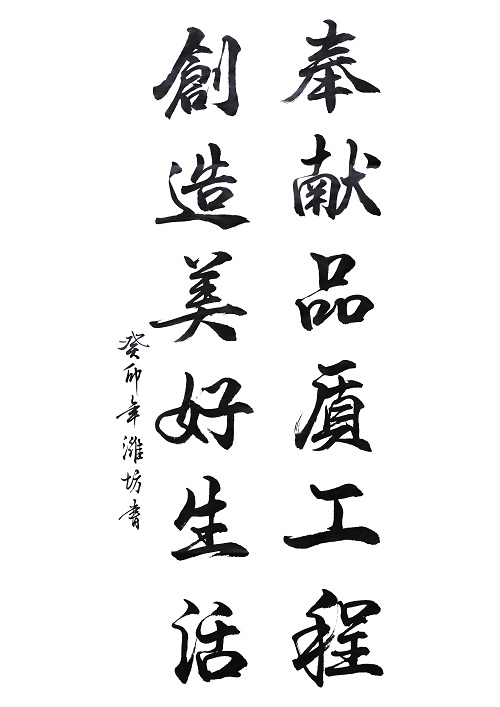 奉献品质工程
創造美好生活
癸卯年濰坊書